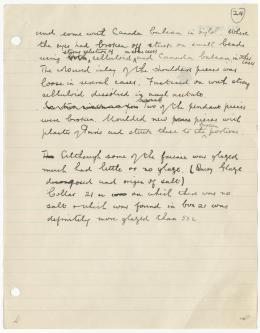 24
and some with Canada balsam in Xylol. Where
the eyes had broken off stuck on small beads
using celluloid and Canada balsam in other
cases
The coloured inlay of the shoulder pieces was
loose in several cases. Fastened on with strong
celluloid dissolved in amyl acetate
of the pendant pieces
were broken. Moulded new pieces with
plaster of and stuck these to the portions
Although some of the faience was glazed
much had little or no glaze. (Query Glaze
and origin of salt)
Collar 21 on which there was no
salt which was found in box 21 was
definitely more glazed than 51c.